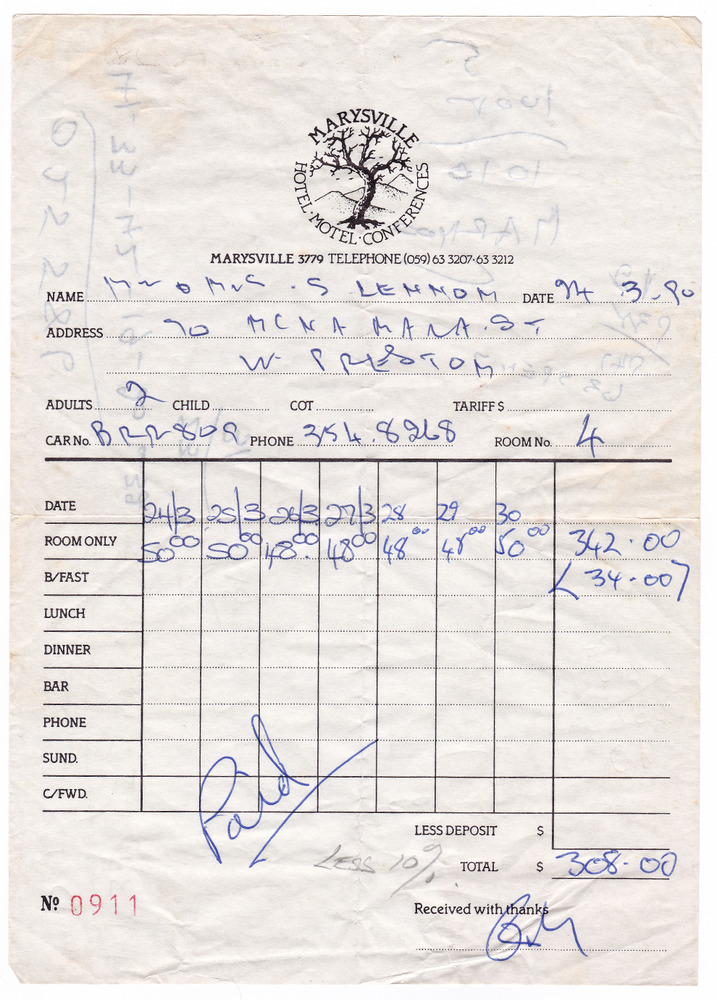 MARYSVILLE
HOTEL · MOTEL · CONFERENCES
MARYSVILLE 3779 TELEPHONE (059) 63 3207·63 3212
NAME Mr & Mrs . S LENNOM DATE 24 3.90
ADDRESS 70 ST
W PRESTOM
ADULTS 2 CHILD COT TARIFF $
CAR No. PHONE 354.8268 ROOM No. 4
DATE 24/3 25/3 26/3 27/3 28 29 30
ROOM ONLY 50 00 50 00 48 00 48 00 48 00 48 00 50 00 342.00
B/FAST < 34.00 >
LUNCH
DINNER
BAR
PHONE
SUND.
C/FWD.
Paid
LESS DEPOSIT $
LESS 10% TOTAL $ 308.00
No 0911 Received with thanks